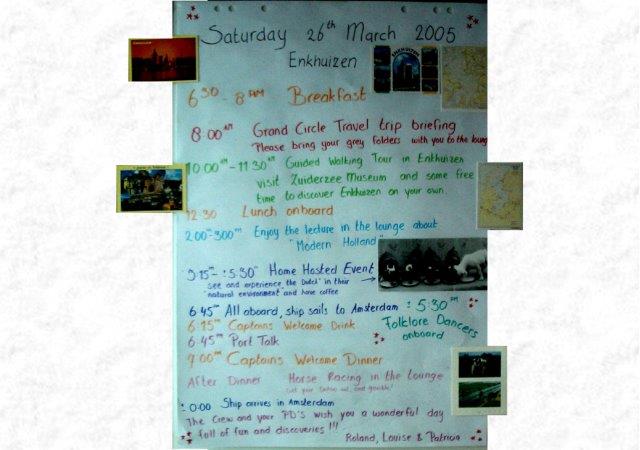 Saturday 26th March 2005
Enkhuizen
6 30 - 8 AM Breakfast
8:00 AM Grand Circle Travel trip briefing
Please bring your grey folders with you to the loung
10:00 AM - 11 30 AM Guided Walking Tour in Enkhuizen
visit Zuiderzee Museum and some free
time to discover Enkhuizen on your own.
12.30 Lunch onboard
2.00 - 3.00 PM Enjoy the lecture in the lounge about
"Modern Holland"
Home Hosted Event
see and experience 'the Dutch' in their
natural environment and have coffee
6 45 All aboard, ship sails to Amsterdam
± 5:30 PM
Folklore Dancers
onboard
6:15 PM Captains Welcome Drink
6:45 PM Port Talk
7:00 PM Captains Welcome Dinner
After Dinner Horse Racing in the Lounge
Ship arrives in Amsterdam
The Crew and your PD's wish you a wonderful day
full of fun and discoveries !!!
Roland, Louise & Patricia